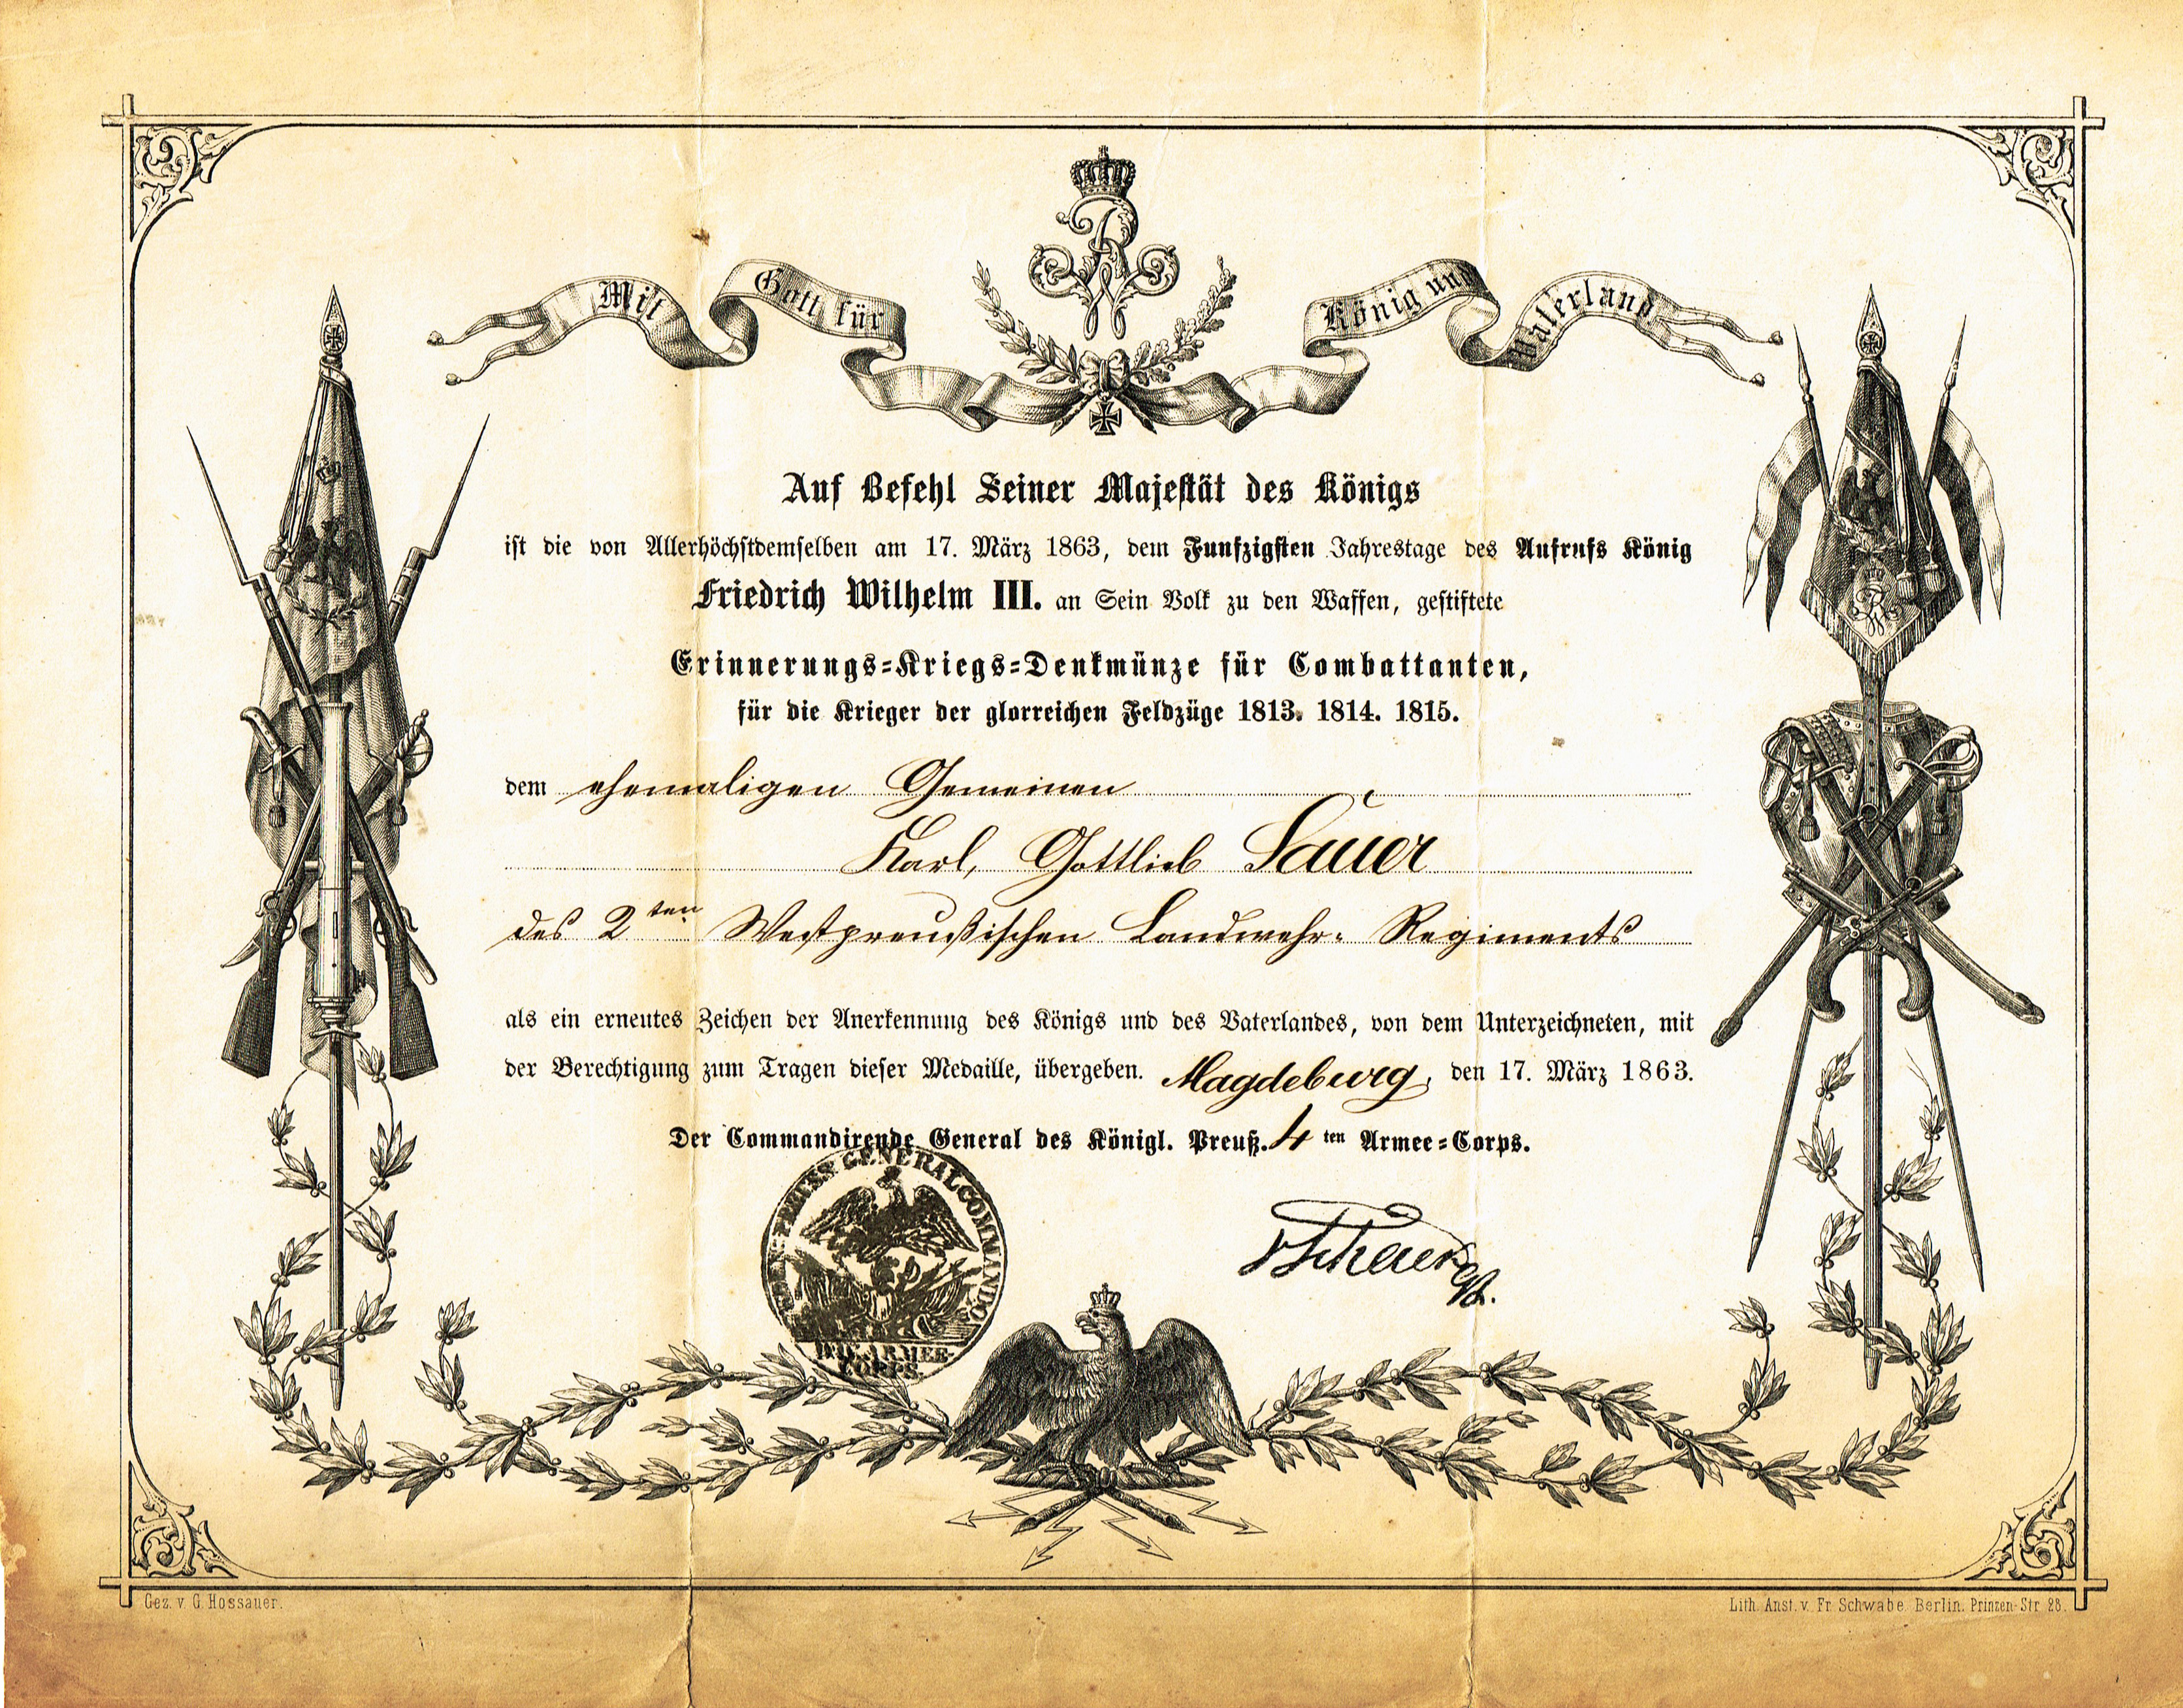 Mit Gott für König und Vaterland
FWR
Auf Befehl Seiner Majestät des Königs
ist die von Allerhöchstdemselben am 17. März 1863, dem Funfzigsten Jahrestage des Aufrufs König
Friedrich Wilhelm III. an Sein Volk zu den Waffen, gestiftete
Erinnerungs-Kriegs-Denkmünze für Combattanten,
für die Krieger der glorreichen Feldzüge 1813. 1814. 1815.
dem ehemaligen Gemeinen
Karl, Gottlieb Sauer
des 2ten Westpreußischen Landwehr-Regiments
als ein erneutes Zeichen der Anerkennung des Königs und des Vaterlandes, von dem Unterzeichneten, mit
der Berechtigung zum Tragen dieser Medaille, übergeben. Magdeburg, den 17. März 1863.
Der Commandirende General des Königl. Preuß. 4ten Armee-Corps.
PREUSS. GENERALCOMMANDO
ARMEE-
CORPS.
Gez. v. G. Hossauer.
Lith. Anst. v. Fr. Schwabe. Berlin. Prinzen-Str 28.